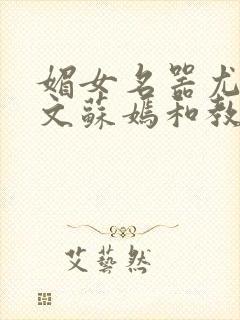 媚女名器尤
文蘇媽和教
艾藝然